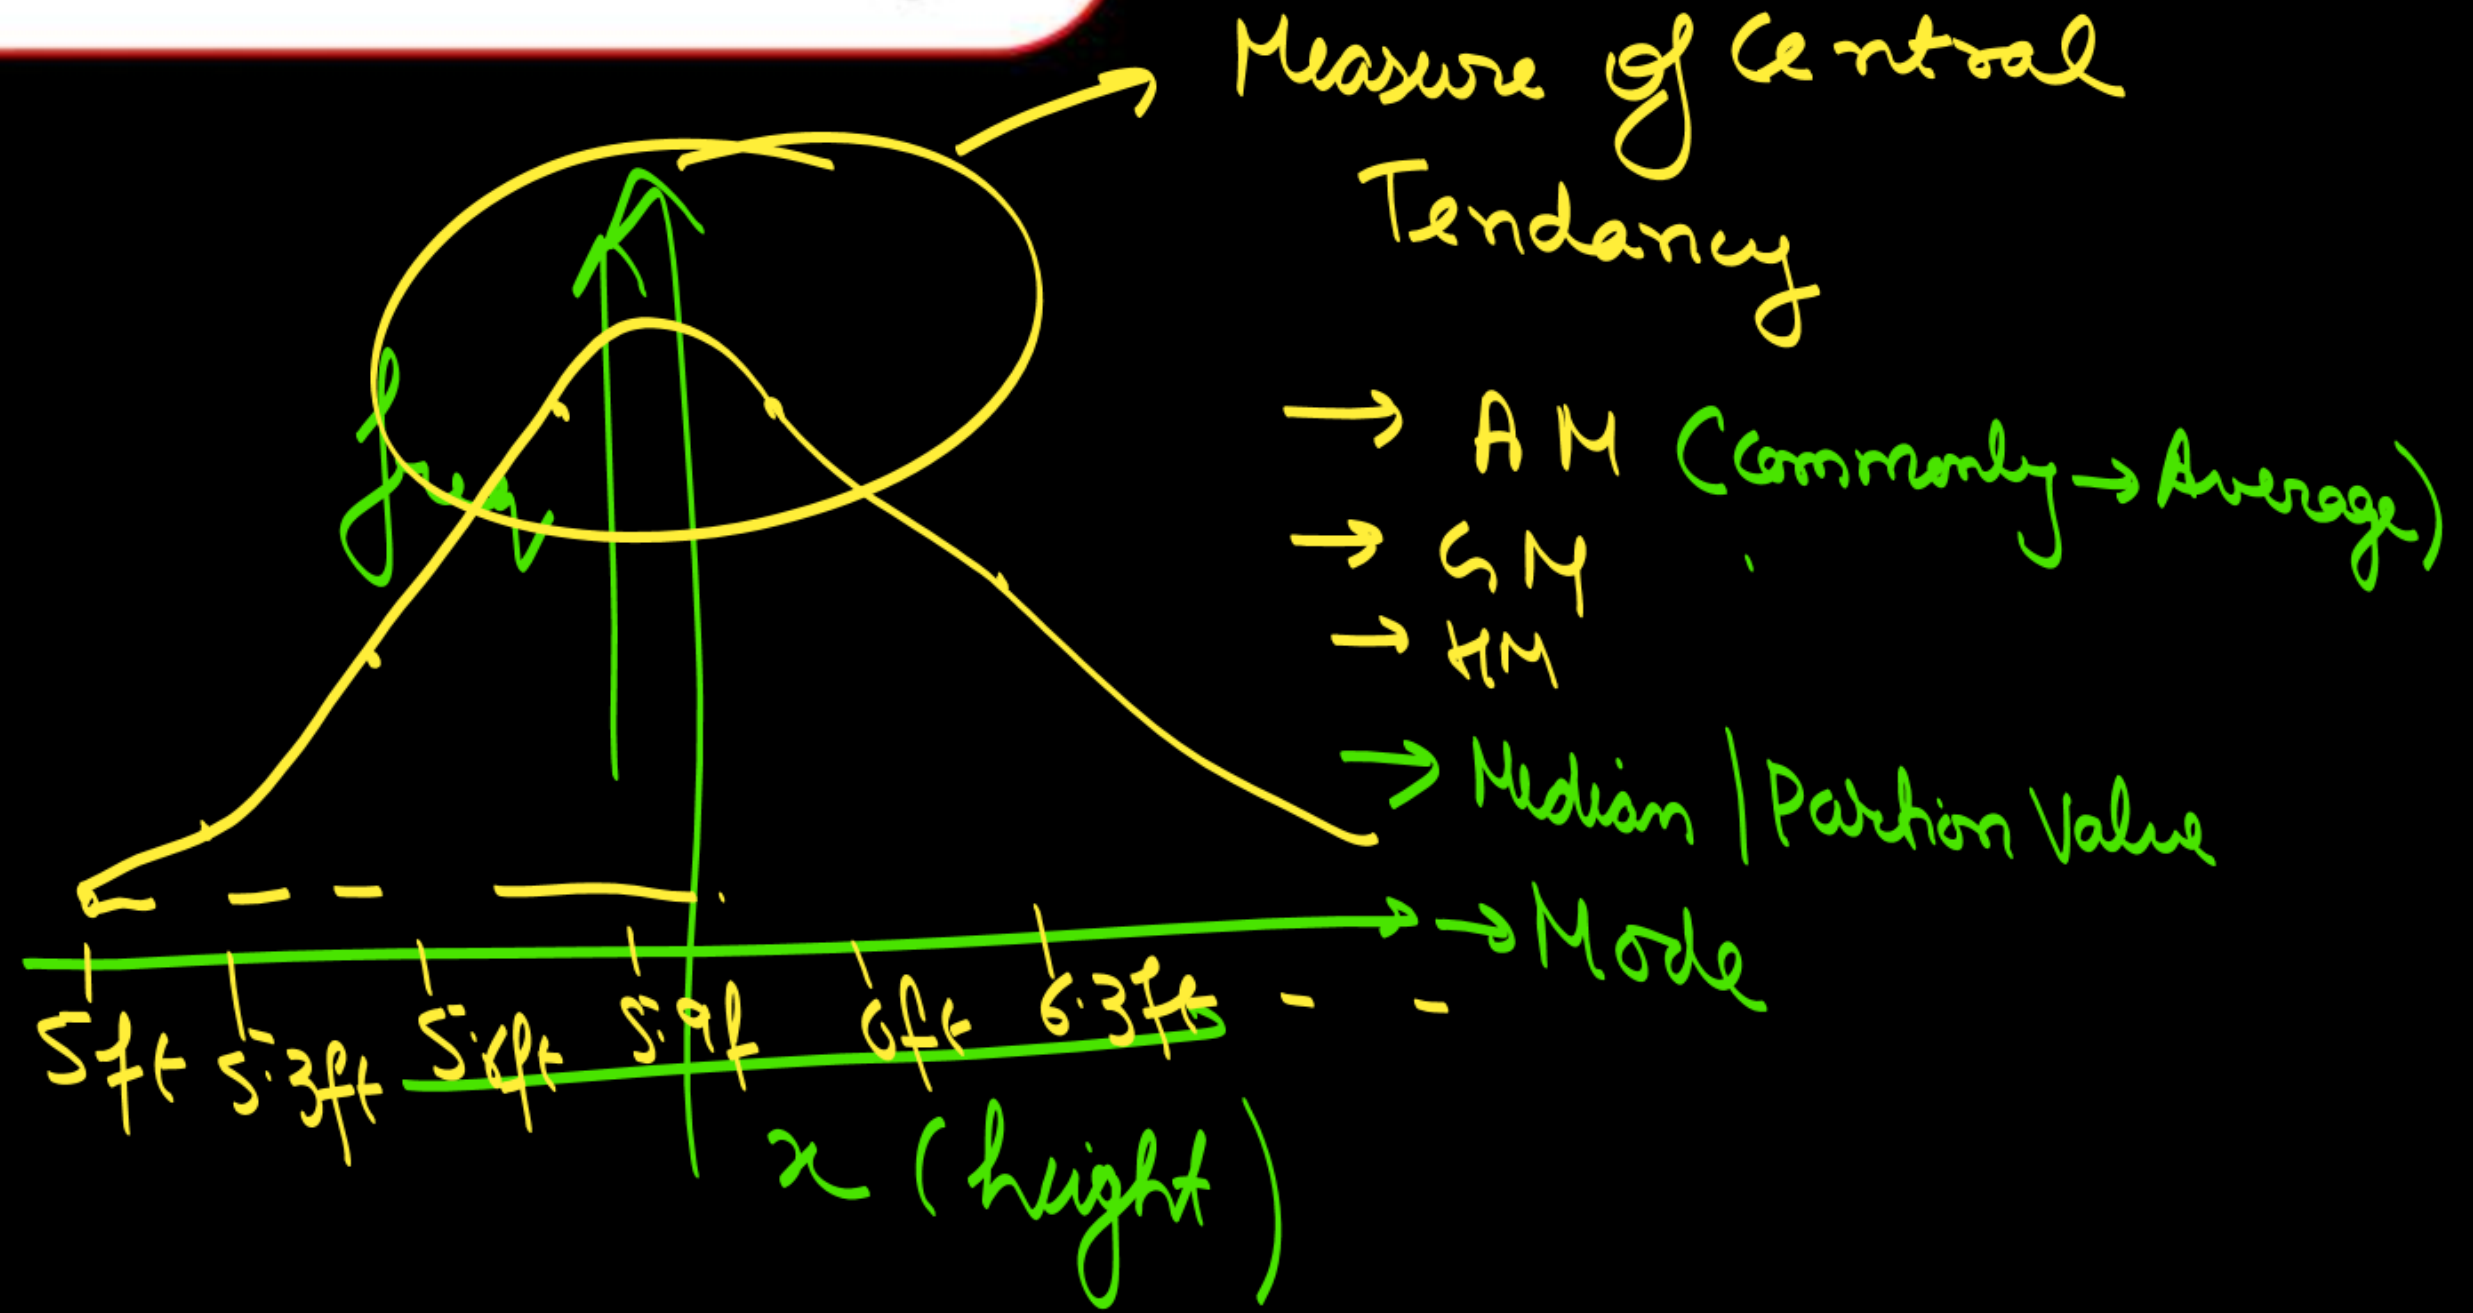 Measure of Central
Tendancy
→ AM (Commonly → Average)
→ GM
→ HM
→ Median | Partion Value
→ Mode
freq
5ft 5.3ft 5.6ft 5.9f 6ft 6.3ft - -
x (height)